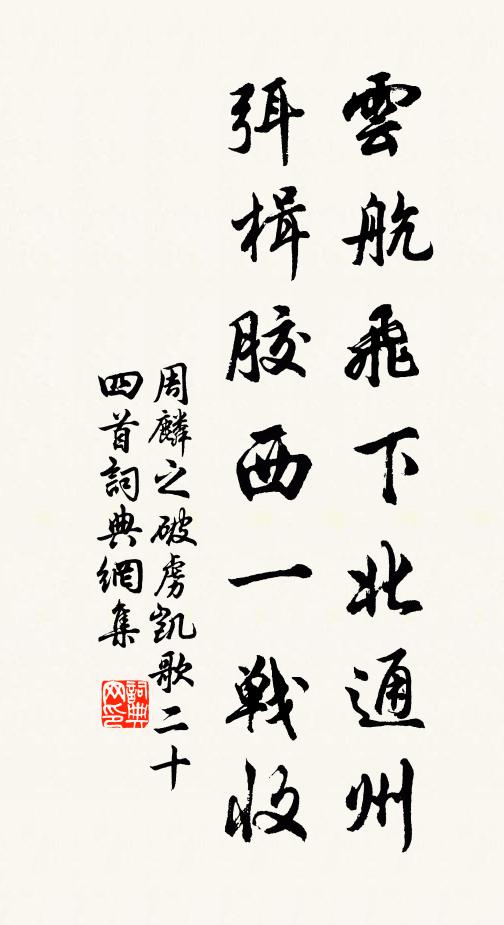 雲航飛下北通州
弭楫胶西一戦收
周麟之破虜凱歌二十
四首詞典網集
詞典網印